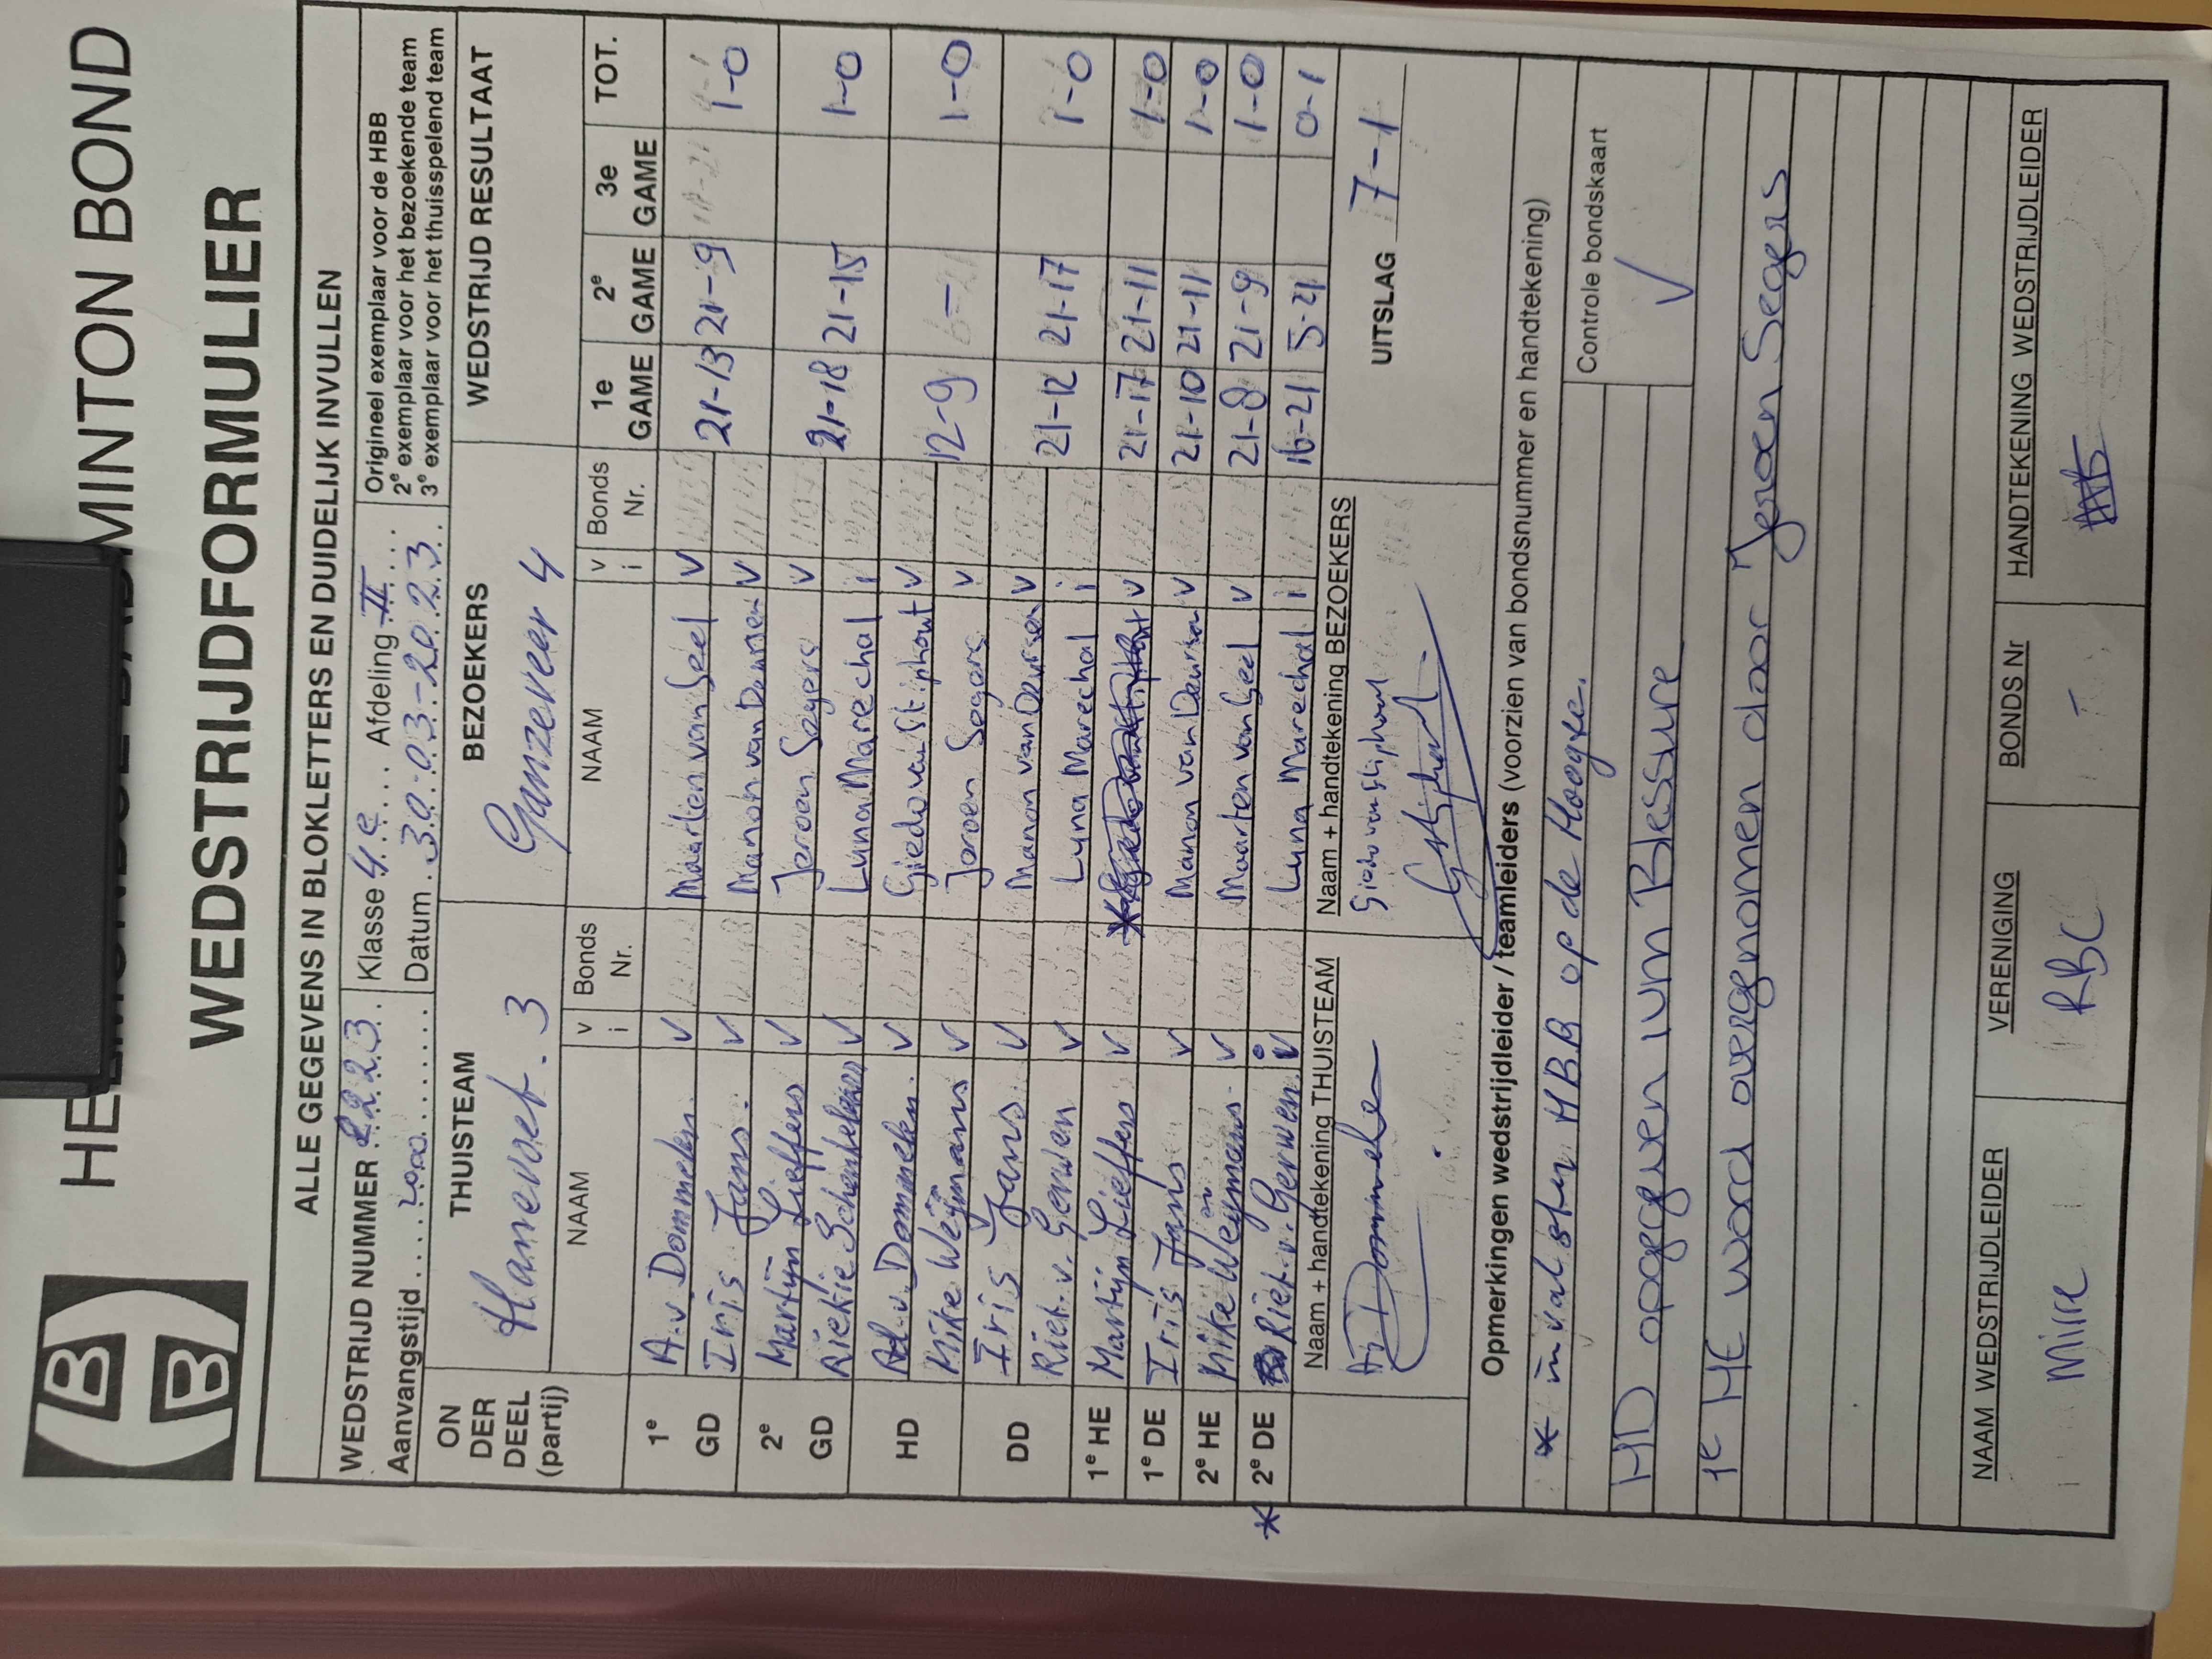 MINTON BOND
WEDSTRIJDFORMULIER
ALLE GEGEVENS IN BLOKLETTERS EN DUIDELIJK INVULLEN
WEDSTRIJD NUMMER 2223. Klasse 4e Afdeling II
Origineel exemplaar voor de HBB
Aanvangstijd 20.00 Datum 30-03-2023.
2e exemplaar voor het bezoekende team
3e exemplaar voor het thuisspelend team
ON DER DEEL (partij) THUISTEAM BEZOEKERS WEDSTRIJD RESULTAAT
Hanevoet. 3 Ganzeveer 4
NAAM v i Bonds Nr. NAAM v i Bonds Nr. 1e GAME 2e GAME 3e GAME TOT.
1e GD A.v. Dommelen. v Maarten van Geel v 21-13 21-9 1-0
Iris Jans. v Manon van Deursen v
2e GD Martijn Lieffers v Jeroen Segers v 21-18 21-15 1-0
Riekie v Luna Marechal i
HD Ad. v. Dommelen. v Giedo van Stiphout v 12-9 - 1-0
Mike Weijmans v Jeroen Segers v
DD Iris Jans v Manon van Deursen v 21-12 21-17 1-0
Riet. v. Gerwen v Luna Marechal i
1e HE Martijn Lieffers v * v 21-17 21-11 1-0
1e DE Iris Jans v Manon van Deursen v 21-10 21-11 1-0
2e HE Mike Weijmans v Maarten van Geel v 21-8 21-9 1-0
* 2e DE Riet. v. Gerwen. Luna Marechal i 16-21 5-21 0-1
Naam + handtekening THUISTEAM Naam + handtekening BEZOEKERS UITSLAG 7-1
Giedo van Stiphout
Opmerkingen wedstrijdleider / teamleiders (voorzien van bondsnummer en handtekening)
* invalster HBB op de Hoogte.
Controle bondskaart
HD opgegeven ivm Blessure
V
1e HE word overgenomen door Jeroen Segers
NAAM WEDSTRIJDLEIDER VERENIGING BONDS Nr HANDTEKENING WEDSTRIJDLEIDER
RBC -